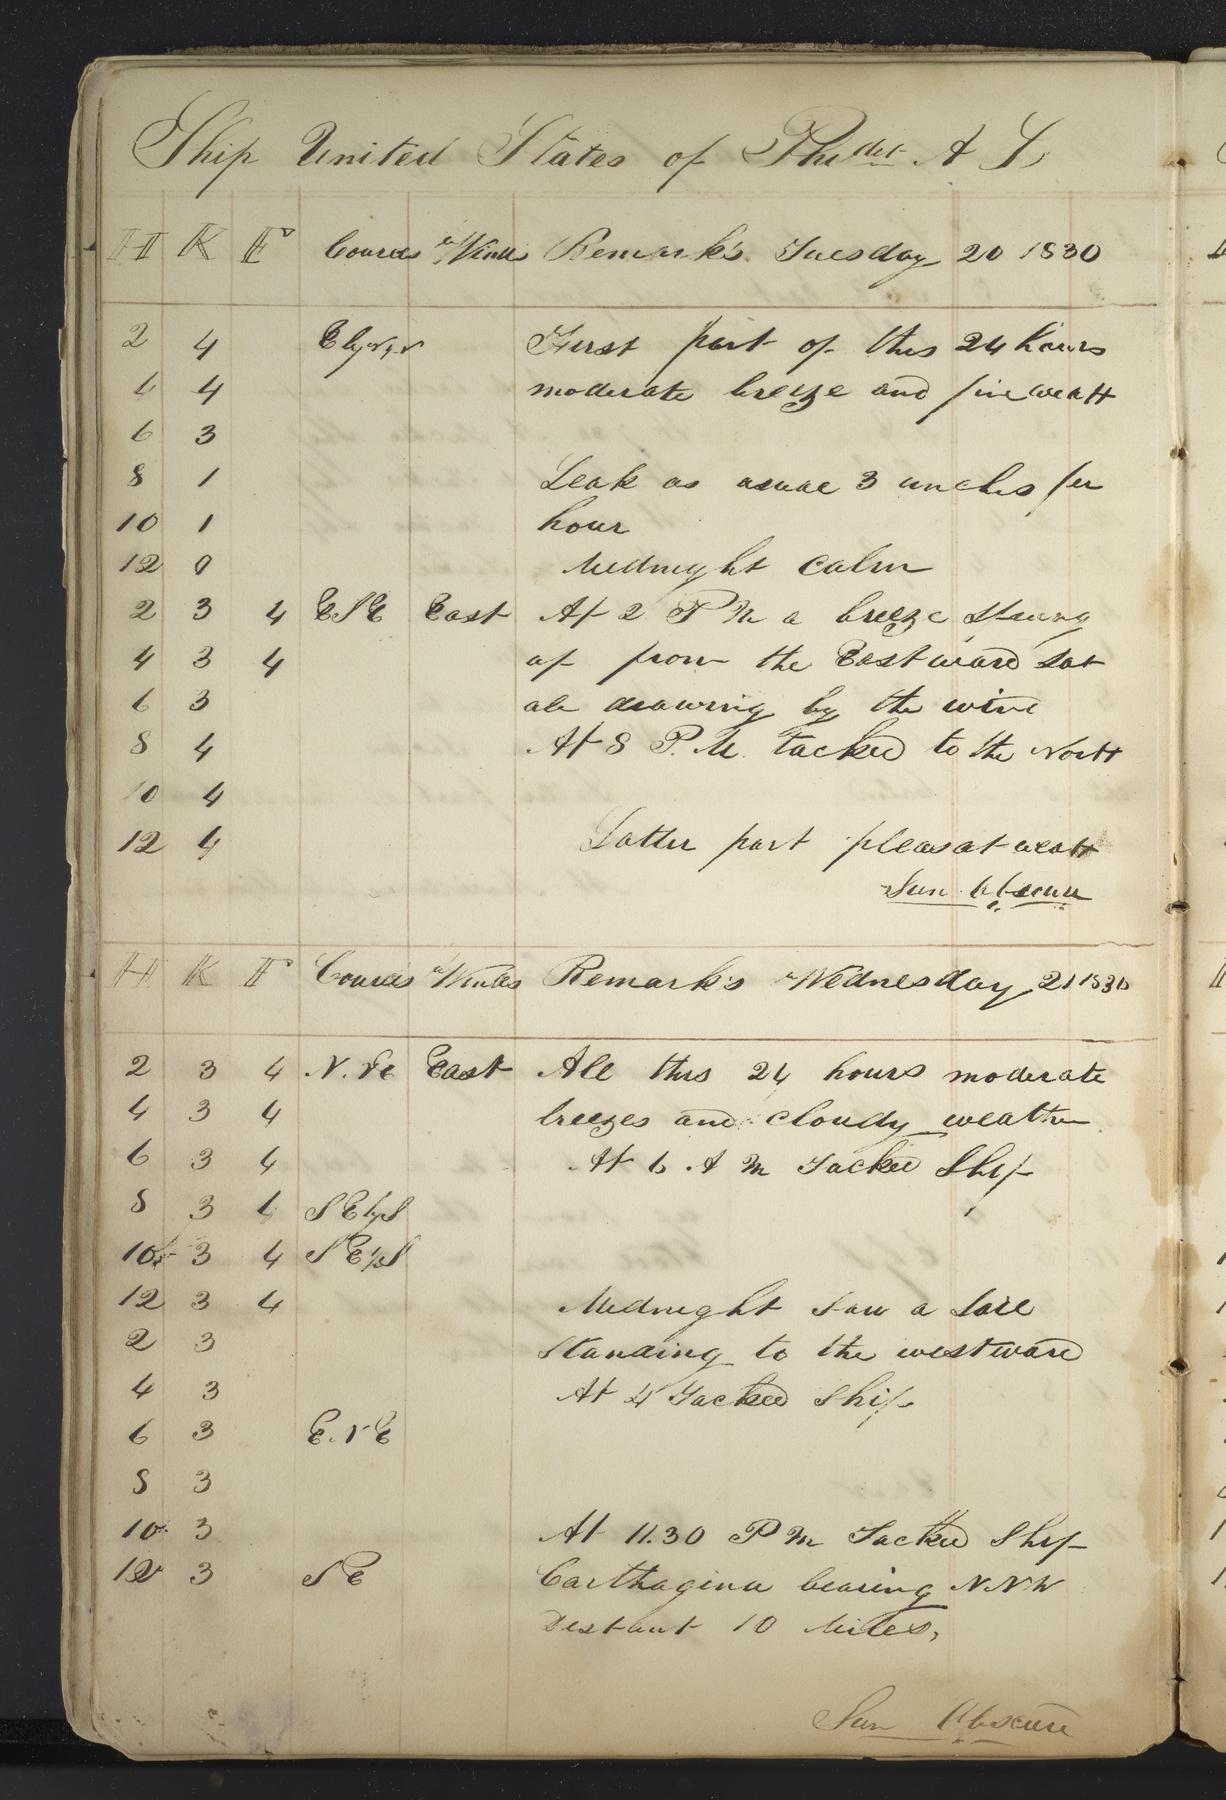 Ship United States of Phidel A S
H K F Courses & Winds Remark's Tuesday 20 1830
2 4 First part of this 24 hours
4 4 moderate breeze and fine weatt
6 3
8 1 Leak as usual 3 inches per
10 1 hour
12 0 Midnight calm
2 3 4 ESE East At 2 P M a breeze strung
4 3 4 up from the Eastward sat
6 3 all drawing by the wind
8 4 At 8 P. M. tacked to the Nortt
10 4
12 4 Latter part pleasat weatt
Sun Obscure
H K F Courses & Winds Remark's Wednesday 21 1830
2 3 4 N. NE East All this 24 hours moderate
4 3 4 breezes and cloudy weather
6 3 4 At 6 A M Tacked Ship
8 3 4 SEbyS
10 3 4 SEbyS
12 3 4 Midnight saw a sail
2 3 Standing to the westward
4 3 At 4 Tacked Ship
6 3 E. N E
8 3
10 3 At 11.30 P M Tacked Ship
12 3 S E Carthagina bearing N N W
Distant 10 Miles,
Sun Obscure